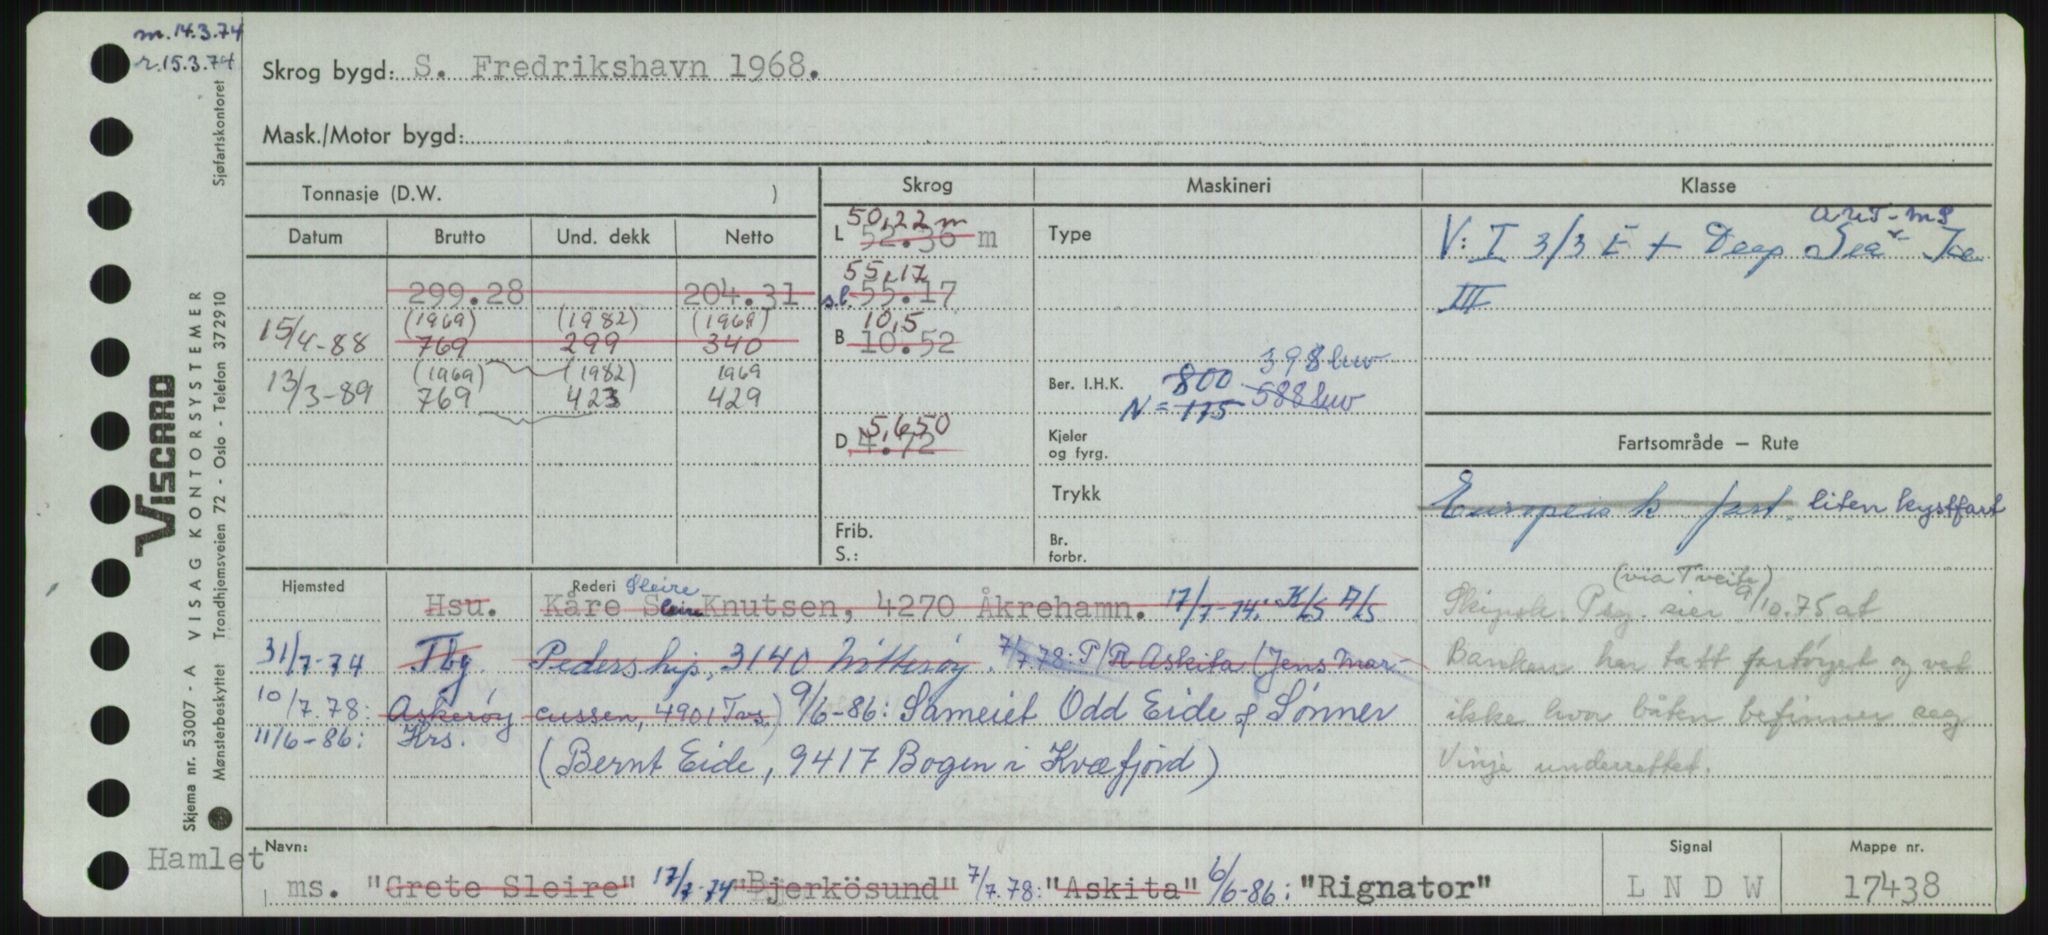 m.14.3.74
r.15.3.74
Skrog bygd: S. Fredrikshavn 1968.
Mask./Motor bygd:
Tonnasje (D.W. )
Skrog
Maskineri
Klasse
Datum Brutto Und. dekk Netto
299.28 204.31
15/4-88 (1969) 769 (1982) 299 (1969) 340
13/3-89 (1969) 769 (1982) 423 1969 429
50,22 m
L 52.36 m
55,17
s.l. 55.17
10,5
B 10.52
5,650
D 4.72
Frib.
S.:
Type
398 kw
Ber. I.H.K. 800 588 kw
N = 115
Kjeler
og fyrg.
Trykk
Br.
forbr.
AUT-MS
V: I 3/3 E + Deep Sea Ice
III
Fartsområde — Rute
Europeisk fart. liten kystfart
(via Tveite)
Skipsk. Peg. sier 9/10.75 at
Banken har tatt fartøyet og vet
ikke hvor båten befinner seg
Vinje underrettet.
Hjemsted Rederi Sleire
Hsu. Kåre Sleire Knutsen, 4270 Åkrehamn. 17/7-74: K/S A/S
31/7-74 Tbg. Pedership, 3140 Nötteröy. 7/7.78: P/R Askita (Jens Mar-
10/7.78: Askerøy cussen, 4901 Tvs.) 9/6-86: Sameiet Odd Eide & Sønner
11/6-86: Hrs. (Bernt Eide, 9417 Bogen i Kvæfjord)
Navn:
Hamlet
ms. "Grete Sleire" 17/7-74 "Bjerkösund" 7/7.78: "Askita" 6/6-86: "Rignator"
Signal
L N D W
Mappe nr.
17438
Sjøfartskontoret
VISCARD
Skjema nr. 53007 - A VISAG KONTORSYSTEMER
Mønsterbeskyttet Trondhjemsveien 72 - Oslo - Telefon 372910